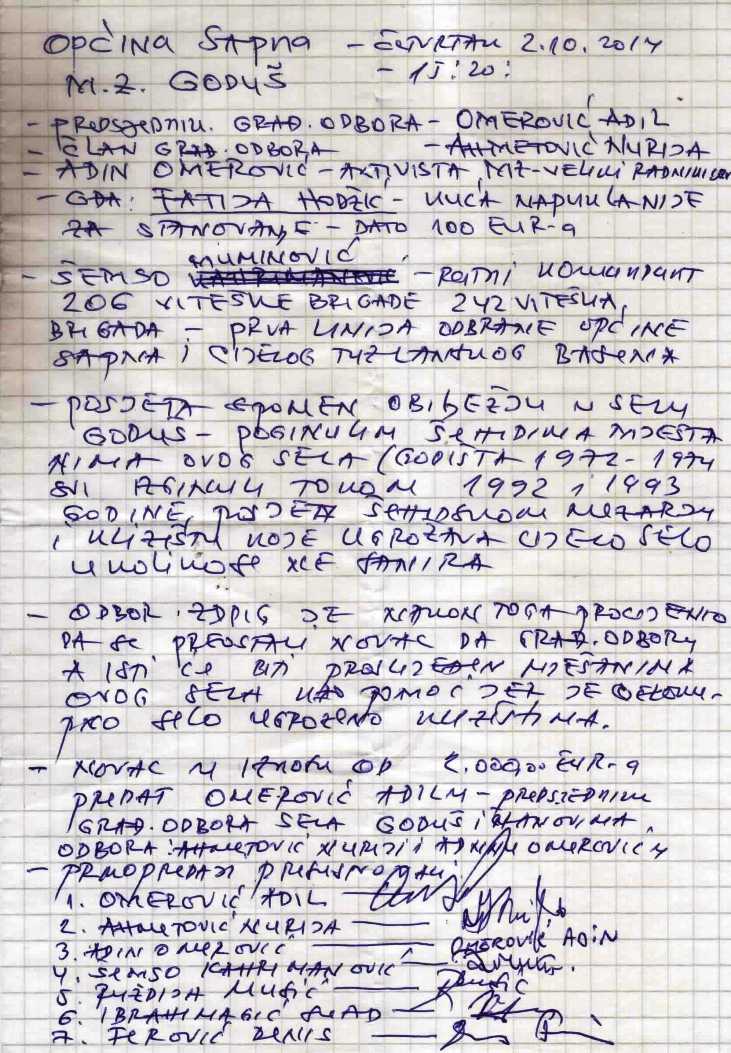 OPĆINA SAPNA - ČETVRTAK 2.10.2014
M.Z. GODUŠ - 15:20:
- PREDSJEDNIK. GRAĐ. ODBORA - OMEROVIĆ ADIL
- ČLAN GRAĐ. ODBORA - AHMETOVIĆ NURIJA
- ADIN OMEROVIĆ - AKTIVISTA MZ - VELIKI RADNIK
- GĐA: FATIJA HODŽIĆ - KUĆA NAPUKLA NIJE
ZA STANOVANJE - DATO 100 EUR-a
MUMINOVIĆ
- ŠEMSO - RATNI KOMANDANT
206 VITEŠKE BRIGADE 242 VITEŠKA,
BRIGADA - PRVA LINIJA ODBRANE OPĆINE
SAPNA I CIJELOG TUZLANSKOG BASENA
- POSJETA SPOMEN OBILJEŽJU U SELU
GODUŠ - POGINULIM ŠEHIDIMA MJEŠTA
NIMA OVOG SELA (GODIŠTA 1972 - 1974
SVI IZGINULI TOKOM 1992 i 1993
GODINE, POSJETA ŠEHIDSKOM MEZARJU
i KLIZIŠTU KOJE UGROŽAVA CIJELO SELO
UKOLIKO SE NE SANIRA
- ODBOR ZDPIG JE NAKON TOGA PROCIJENIO
DA SE PREOSTALI NOVAC DA GRAĐ. ODBORU
A ISTI ĆE BITI PROSLIJEĐEN MJEŠTANIMA
OVOG SELA KAO POMOĆ JER JE CJELOKU-
PNO SELO UGROŽENO KLIZIŠTIMA.
- NOVAC U IZNOSU OD 2.000,00 EUR-a
PREDAT OMEROVIĆ ADILU - PREDSJEDNIKU
GRAĐ. ODBORA SELA GODUŠ i ČLANOVIMA
ODBORA: AHMETOVIĆ NURIJI i ADINU OMEROVIĆU
- PRIMOPREDAJI PRISUSTVOVALI:
1. OMEROVIĆ ADIL
2. AHMETOVIĆ NURIJA
3. ADIN OMEROVIĆ OMEROVIĆ ADIN
4. ŠEMSO KAHRIMANOVIĆ
5. RUŽDIJA MUŠIĆ
6. IBRAHIMAGIĆ SEAD
7. FEROVIĆ DENIS